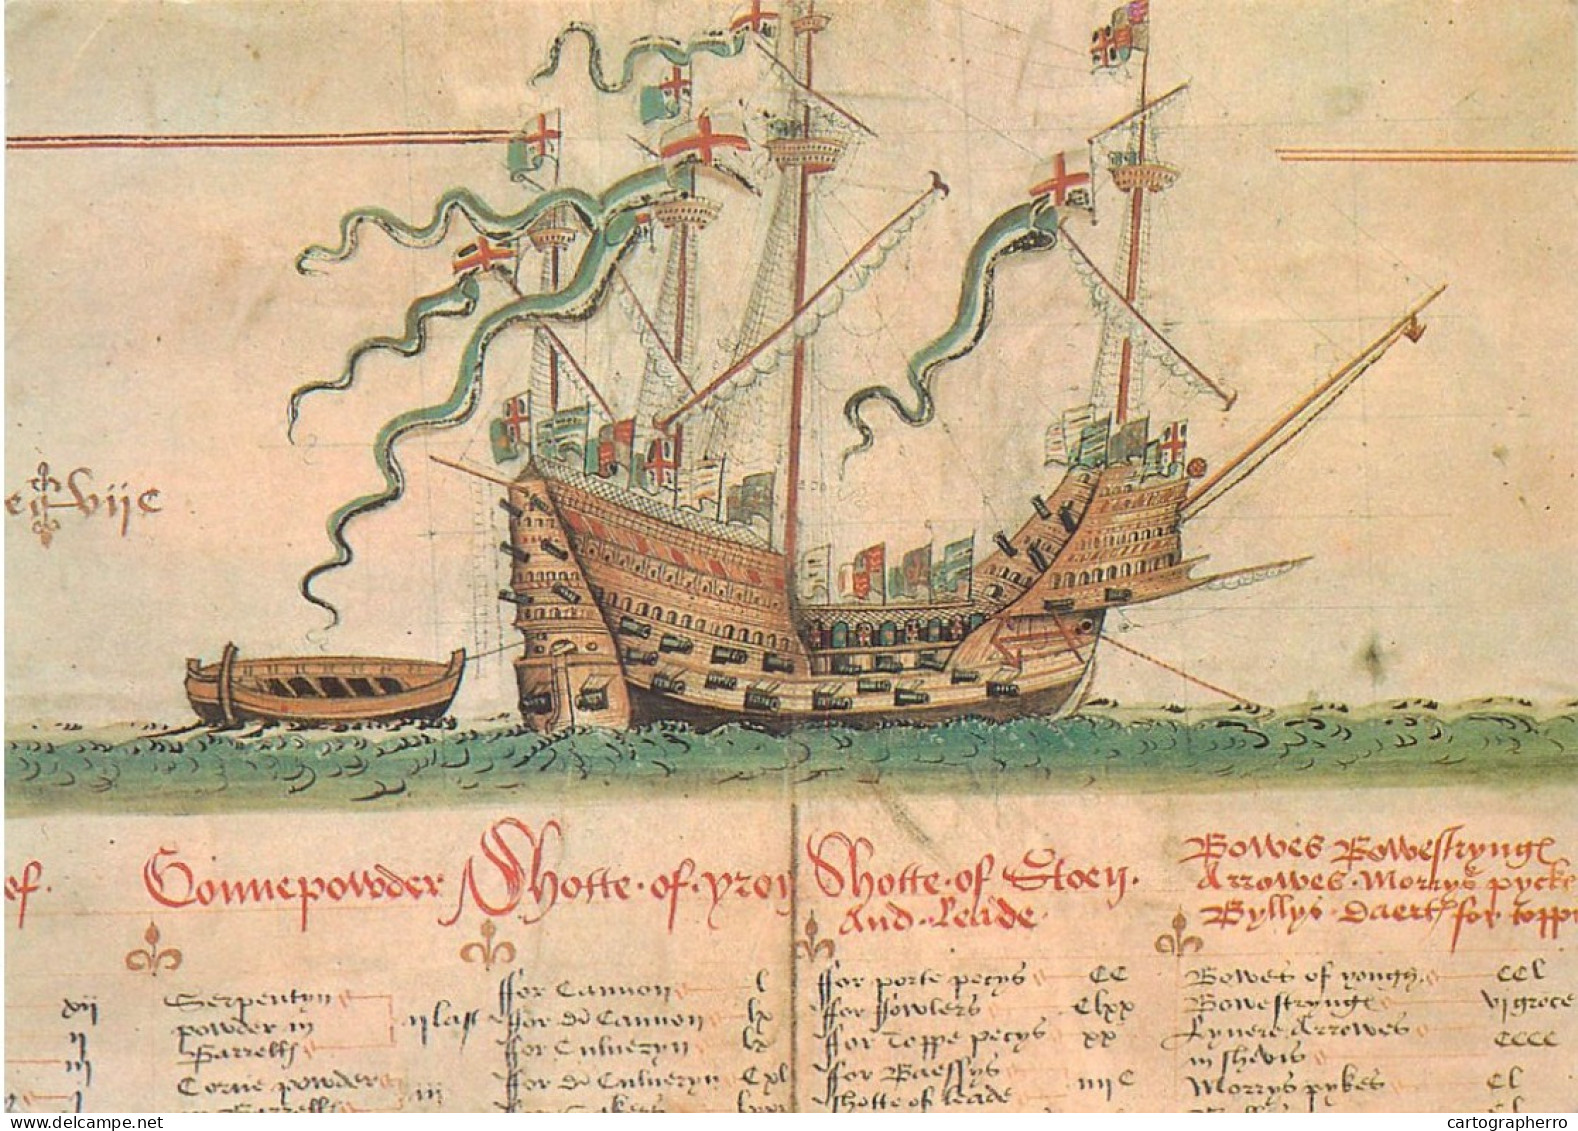 vijc
Gonnepowder
Shotte · of · yron
Shotte · of · Stoen ·
And · Leade ·
Bowes Bowestryngs
Arrowes · Morrys pycke
Byllys · Daerts for topp
Serpentyn
powder in
Barrells
Corne powder
ij last
iij
ffor Cannon l
ffor Di Cannon lx
ffor Culveryn lx
ffor Di Culveryn Cxl
ffor porte pecys CC
ffor ffowlers Clxx
ffor Toppe pecys xx
ffor Baessys
shotte of leade iiijC
Bowes of yough CCl
Bowestryngs vi groce
Lyvere Arrowes
in shevis CCCC
Morrys pykes Cl
xij
ij
iij
cartographerro